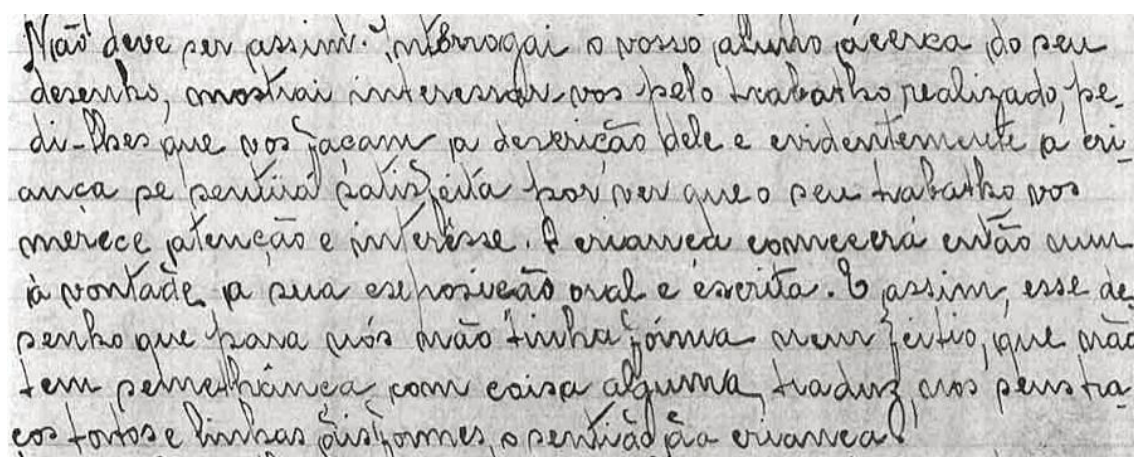 Não deve ser assim. Interrogai o vosso aluno ácerca do seu
desenho, mostrai interessar-vos pelo trabatho realizado, pe-
di-lhes que vos façam a descrição dele e evidentemente a cri-
ança se sentirá satisfeita por ver que o seu trabatho vos
merece atenção e interêsse. A criança começará então num
à vontade a sua exposição oral e escrita. E assim, esse de-
senho que para nós não tinha fórma nem feitio, que não
tem semelhança com coisa alguma, traduz nos seus tra-
ços tortos e linhas disformes, o sentido da criança!